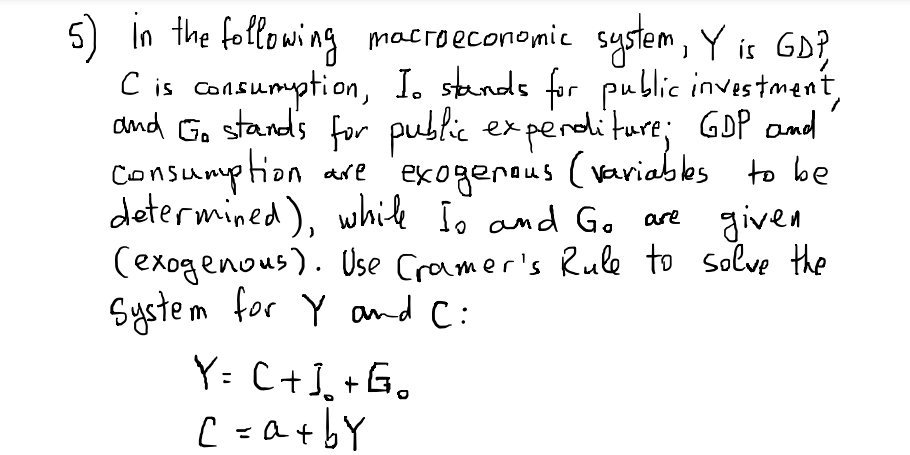 5) in the following macroeconomic system, Y is GDP,
C is consumption, I₀ stands for public investment,
and G₀ stands for public expenditure; GDP and
consumption are exogenous (variables to be
determined), while I₀ and G₀ are given
(exogenous). Use Cramer's Rule to solve the
System for Y and C:
Y = C + I₀ + G₀
C = a + bY